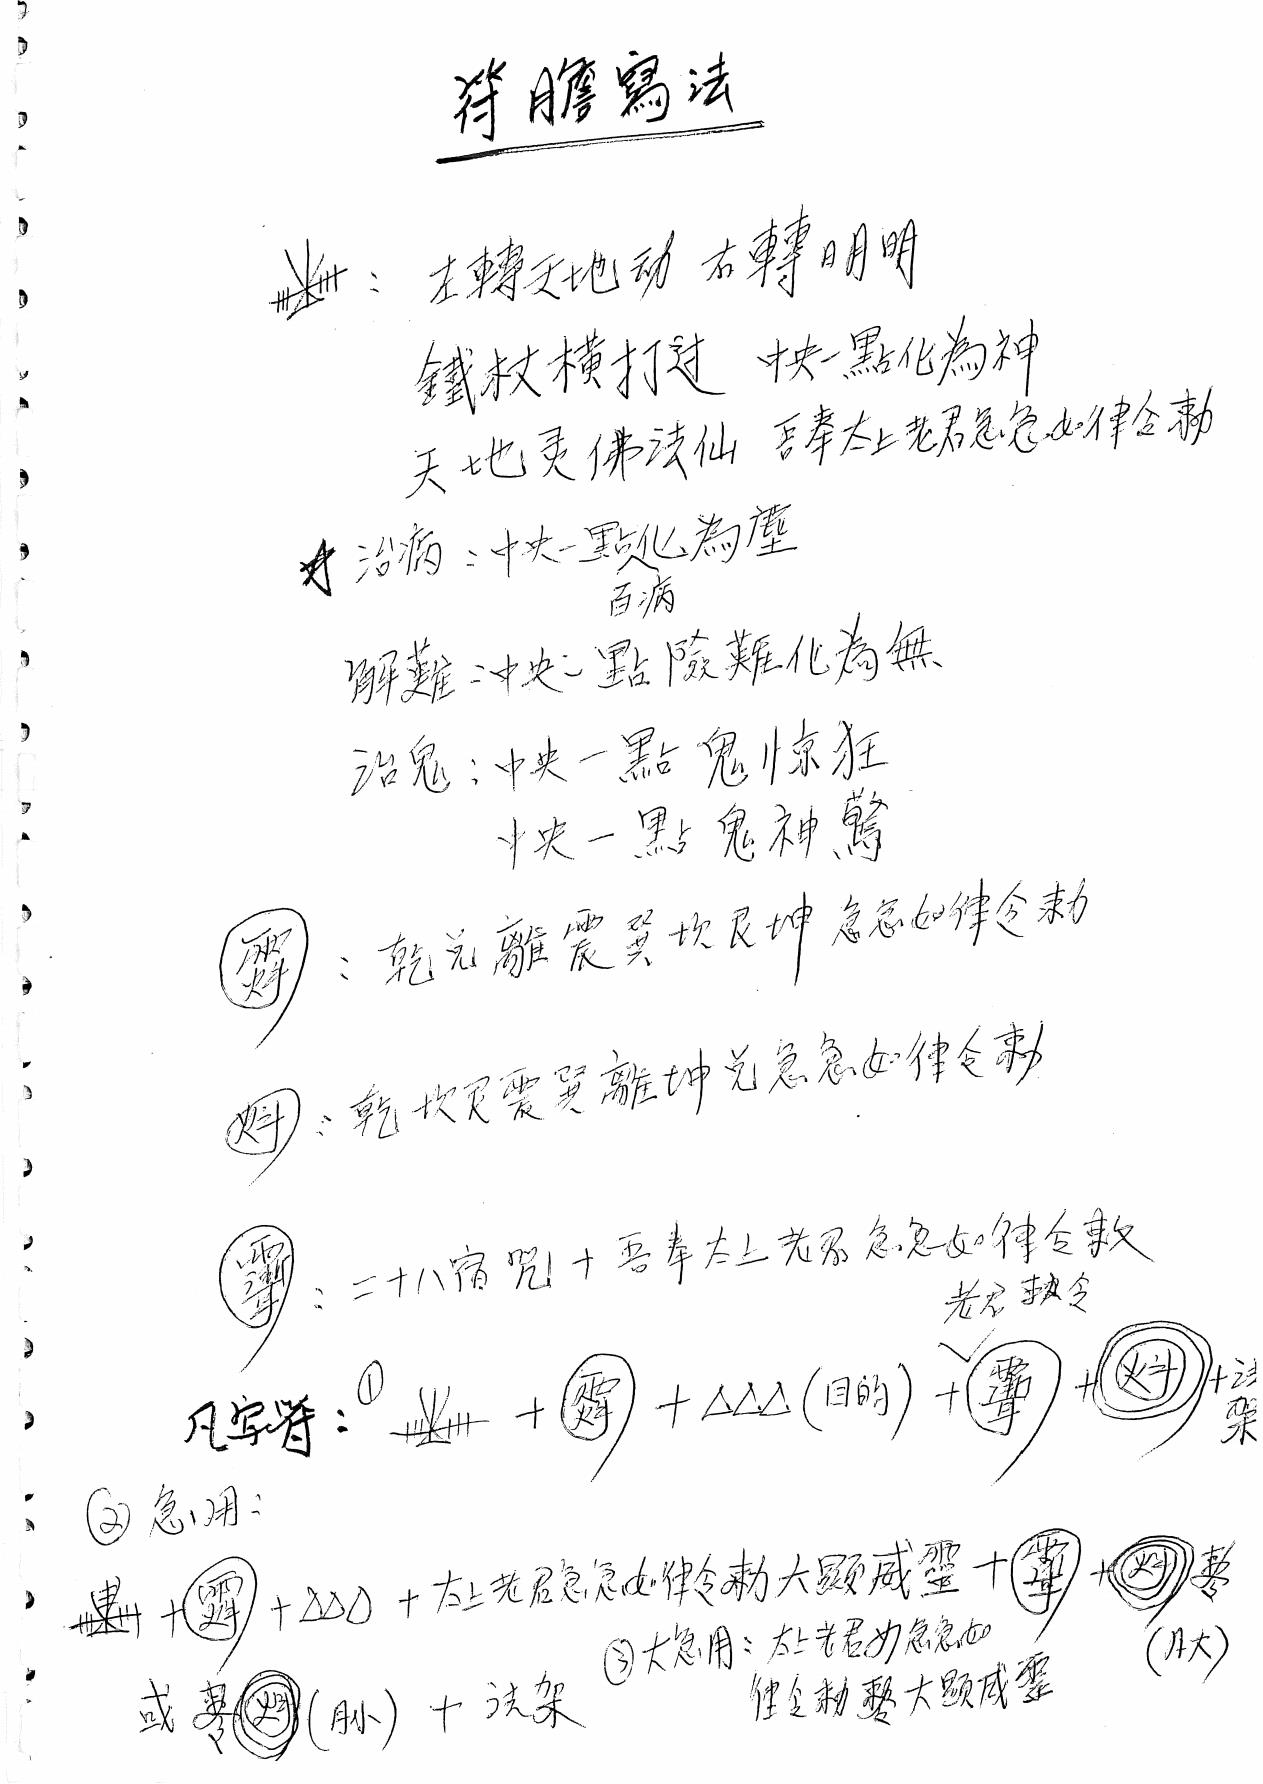 符膽寫法
：左轉天地动 右轉日月明
鐵杖橫打过 中央一點化為神
天地灵佛法仙 吾奉太上老君急急如律令勅
★治病：中央一點化為塵
百病
解難：中央一點險難化為無
治鬼：中央一點鬼惊狂
中央一點鬼神驚
：乾兑離震巽坎艮坤急急如律令勅
：乾坎艮震巽離坤兑急急如律令勅
：二十八宿咒＋吾奉太上老君急急如律令敕
老君勅令
凡字符：① ＋ ＋△△△(目的)＋ ＋ ＋法架
②急用：
＋ ＋△△△＋太上老君急急如律令勅大顯威靈＋ ＋ (月大)
或 (月小)＋法架
③大急用：太上老君如急急如
律令勅 大顯威靈